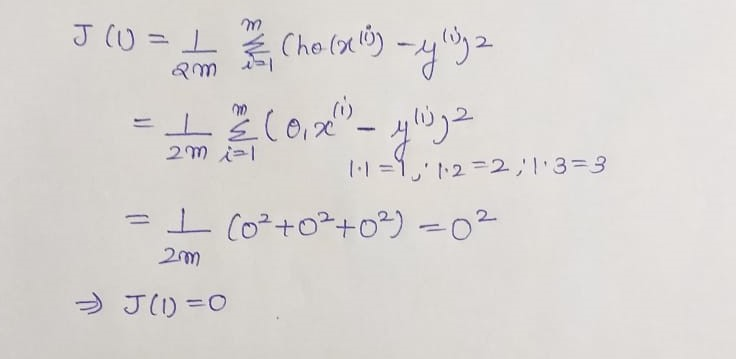 J(1) = 1/2m m∑i=1 (hθ(x⁽ⁱ⁾) - y⁽ⁱ⁾)2
= 1/2m m∑i=1 (θ₁x⁽ⁱ⁾ - y⁽ⁱ⁾)²
1·1=1, ∴ 1·2=2, ∴ 1·3=3
= 1/2m (0²+0²+0²) = 0²
⇒ J(1) = 0